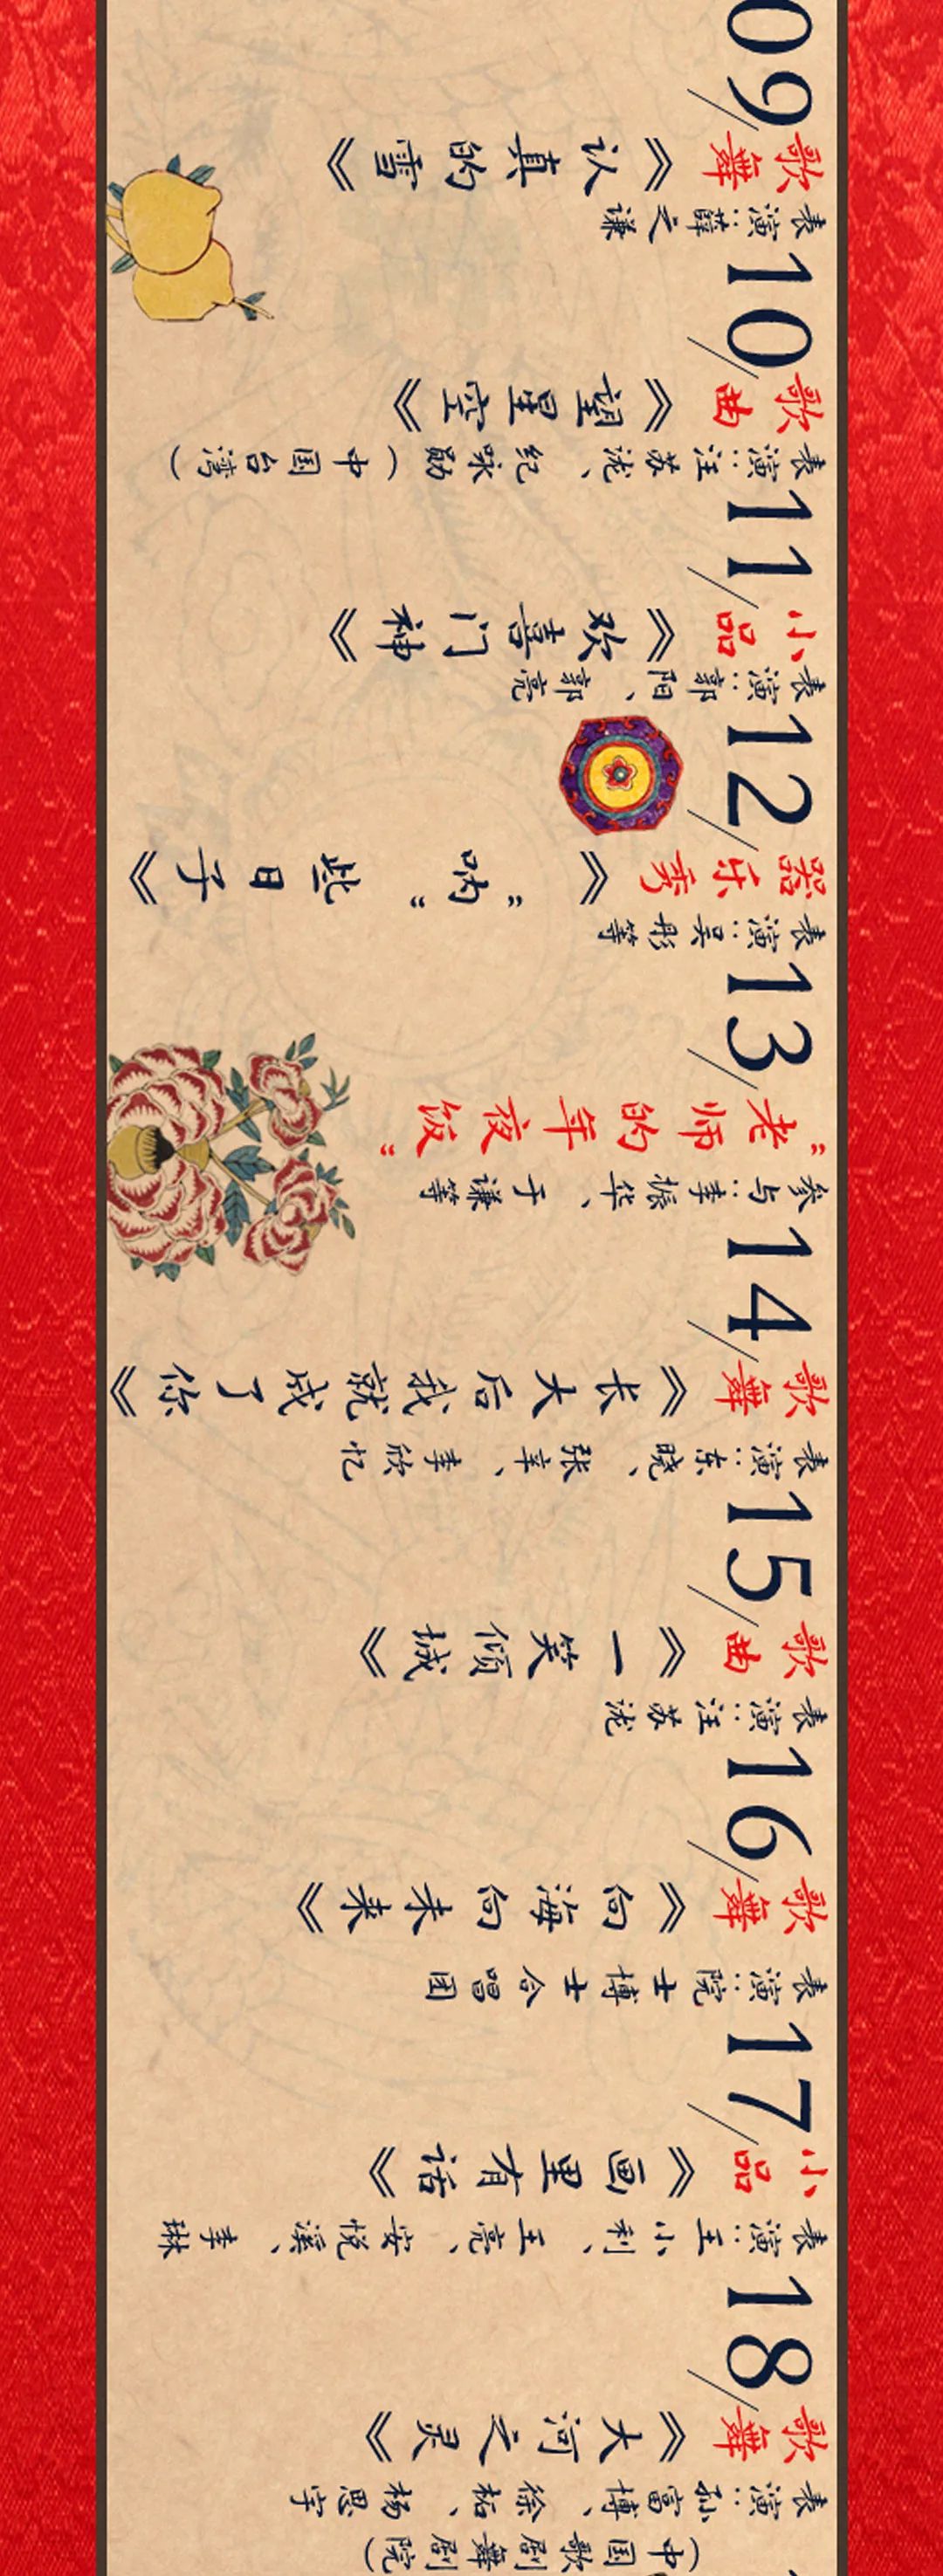 09/
歌舞《认真的雪》
表演：薛之谦
10/
歌曲《望星空》
表演：汪苏泷、纪咏勋（中国台湾）
11/
小品《欢喜门神》
表演：郭阳、郭亮
12/
器乐秀《“呐”些日子》
表演：吴彤等
13/
“老师的年夜饭”
参与：李振华、于谦等
14/
歌舞《长大后我就成了你》
表演：东晓、张幸、李欣忆
15/
歌曲《一笑倾城》
表演：汪苏泷
16/
歌舞《向海向未来》
表演：院士博士合唱团
17/
小品《画里有话》
表演：王小利、王亮、安悦溪、李琳
18/
歌舞《大河之灵》
表演：孙富博、徐柘、杨思宇
（中国歌剧舞剧院）